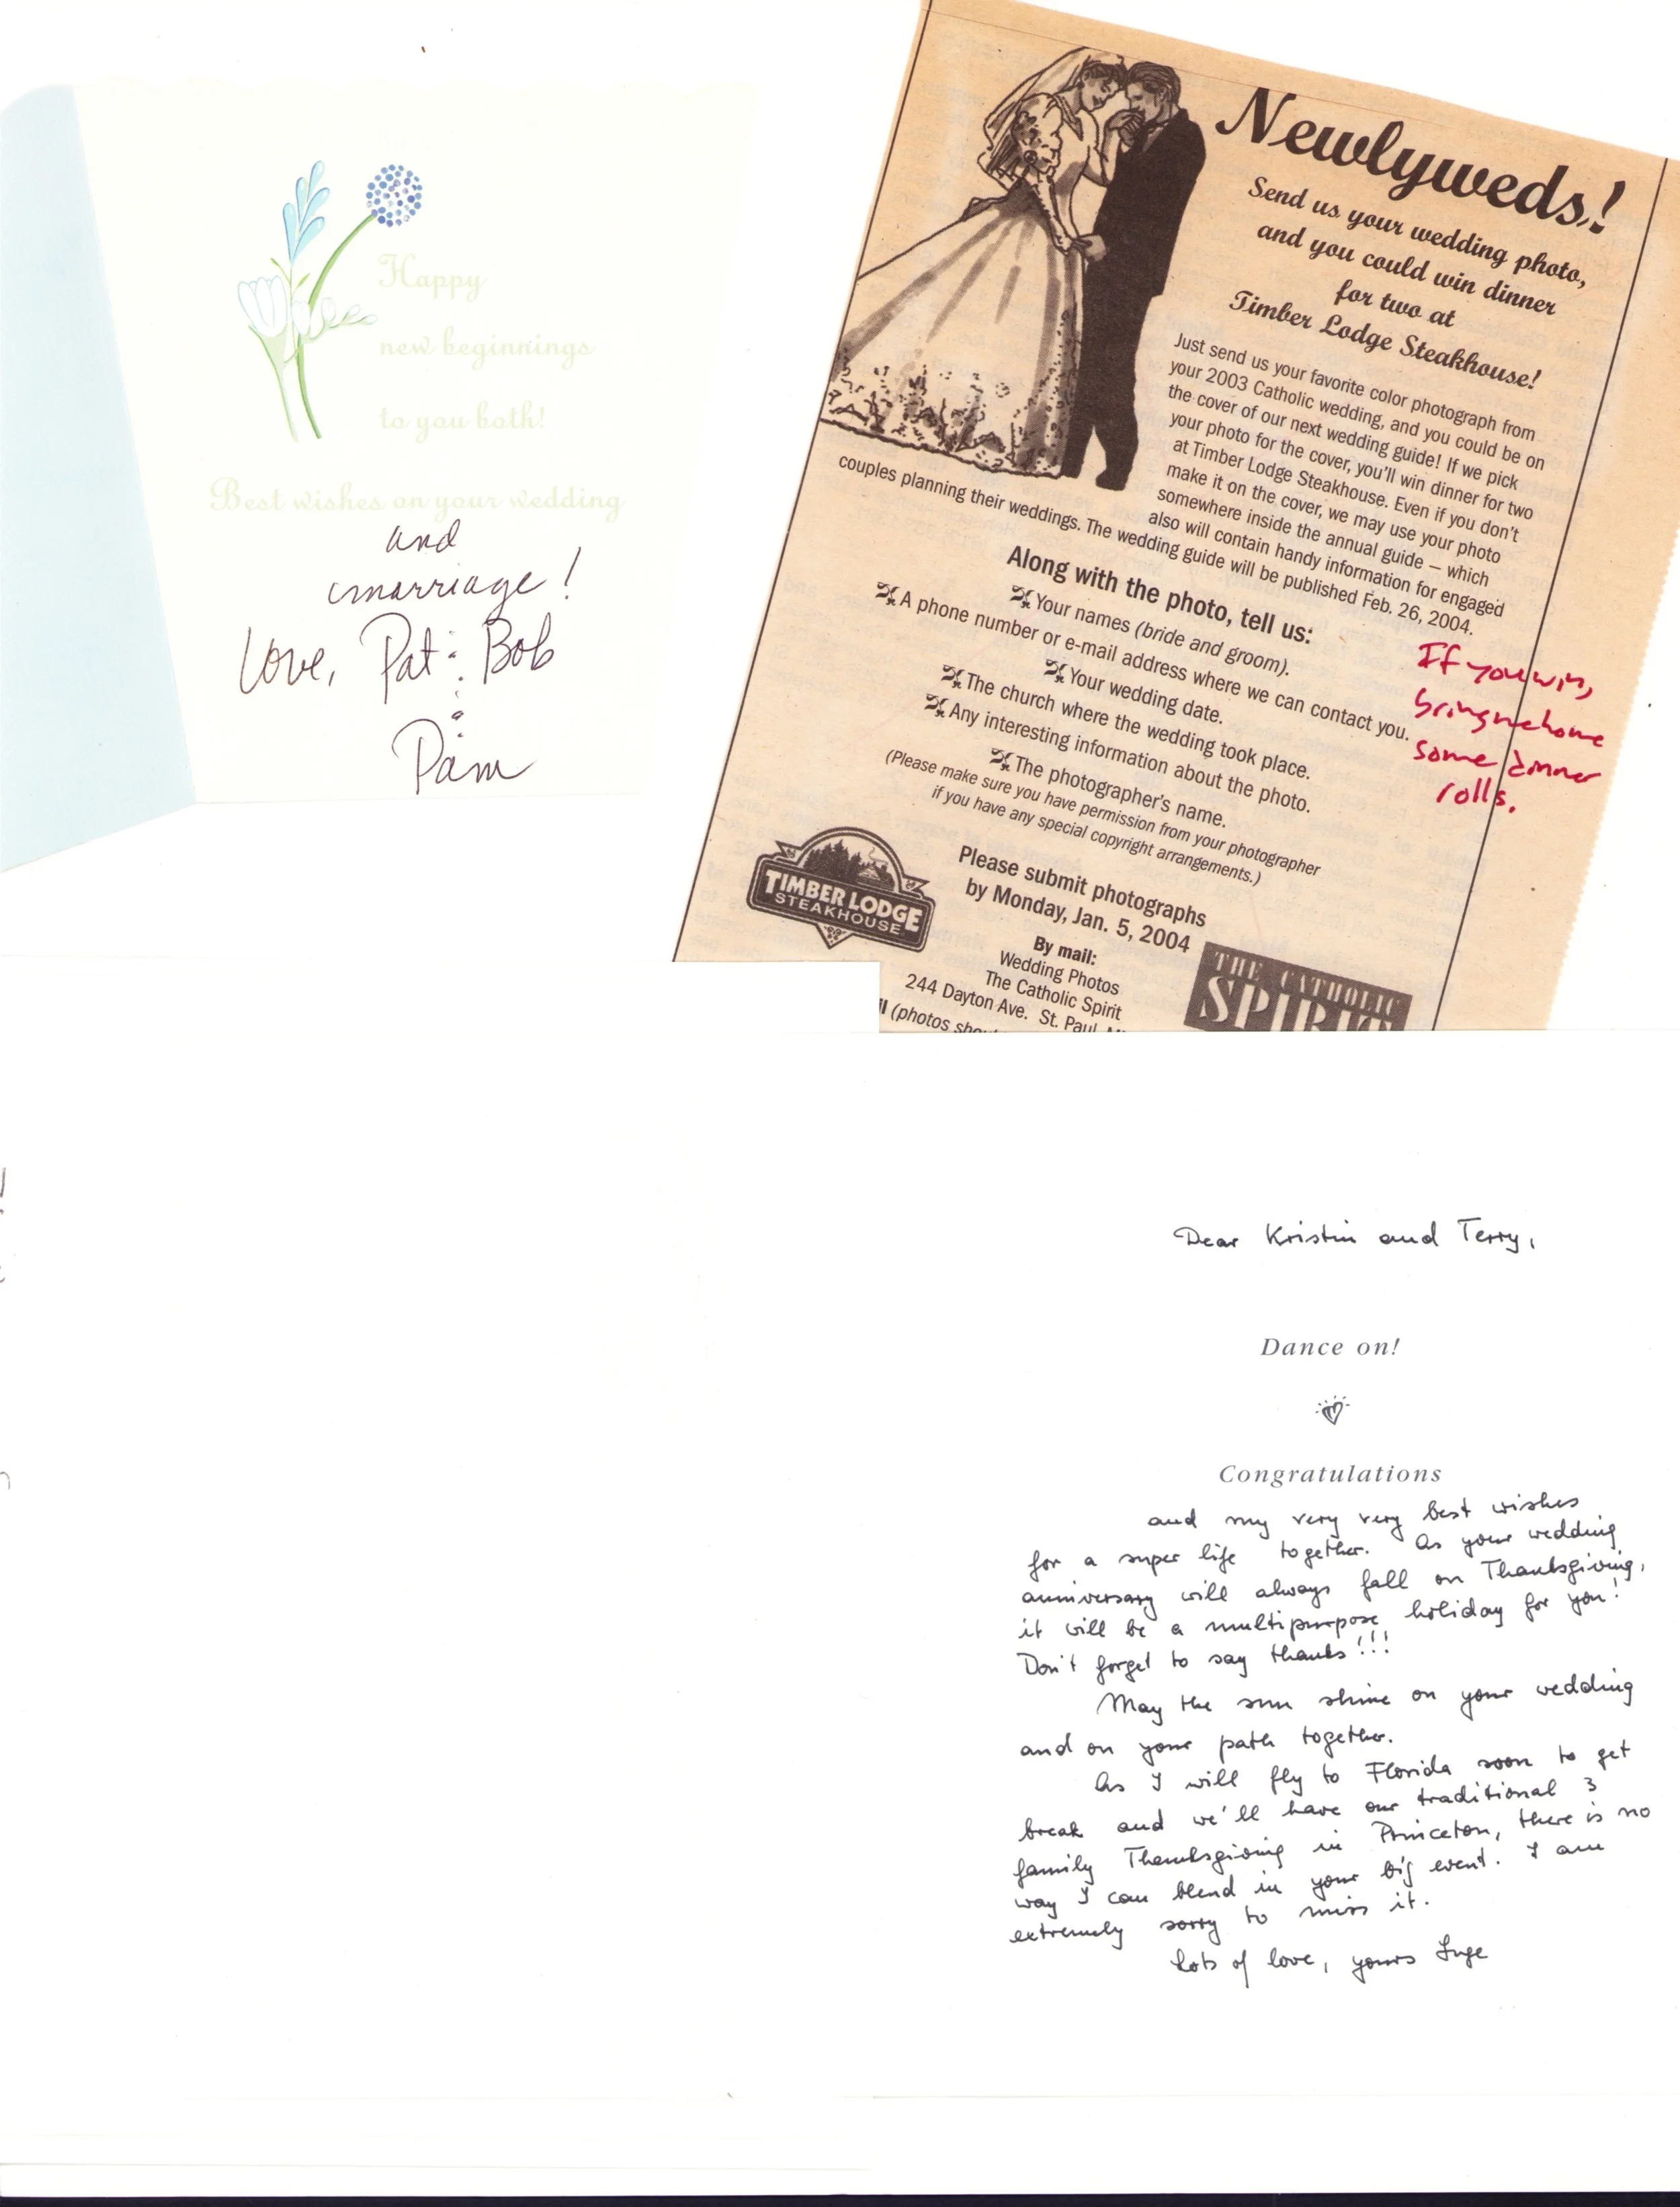 Happy
new beginnings
to you both!
Best wishes on your wedding
and
marriage!
Love, Pat & Bob
&
Pam
Newlyweds!
Send us your wedding photo,
and you could win dinner
for two at
Timber Lodge Steakhouse!
Just send us your favorite color photograph from
your 2003 Catholic wedding, and you could be on
the cover of our next wedding guide! If we pick
your photo for the cover, you'll win dinner for two
at Timber Lodge Steakhouse. Even if you don't
make it on the cover, we may use your photo
somewhere inside the annual guide – which
also will contain handy information for engaged
couples planning their weddings. The wedding guide will be published Feb. 26, 2004.
Along with the photo, tell us:
Your names (bride and groom).
A phone number or e-mail address where we can contact you.
Your wedding date.
The church where the wedding took place.
Any interesting information about the photo.
The photographer's name.
(Please make sure you have permission from your photographer
if you have any special copyright arrangements.)
If you win,
bring me home
some dinner
rolls.
Please submit photographs
by Monday, Jan. 5, 2004
TIMBER LODGE
STEAKHOUSE
By mail:
Wedding Photos
The Catholic Spirit
244 Dayton Ave. St. Paul,
(photos
THE CATHOLIC
SPIRIT
Dear Kristin and Terry,
Dance on!
Congratulations
and my very very best wishes
for a super life together. As your wedding
anniversary will always fall on Thanksgiving,
it will be a multipurpose holiday for you!
Don't forget to say thanks!!!
May the sun shine on your wedding
and on your path together.
As I will fly to Florida soon to get
break and we'll have our traditional 3
family Thanksgiving in Princeton, there is no
way I can blend in your big event. I am
extremely sorry to miss it.
Lots of love, yours Inge